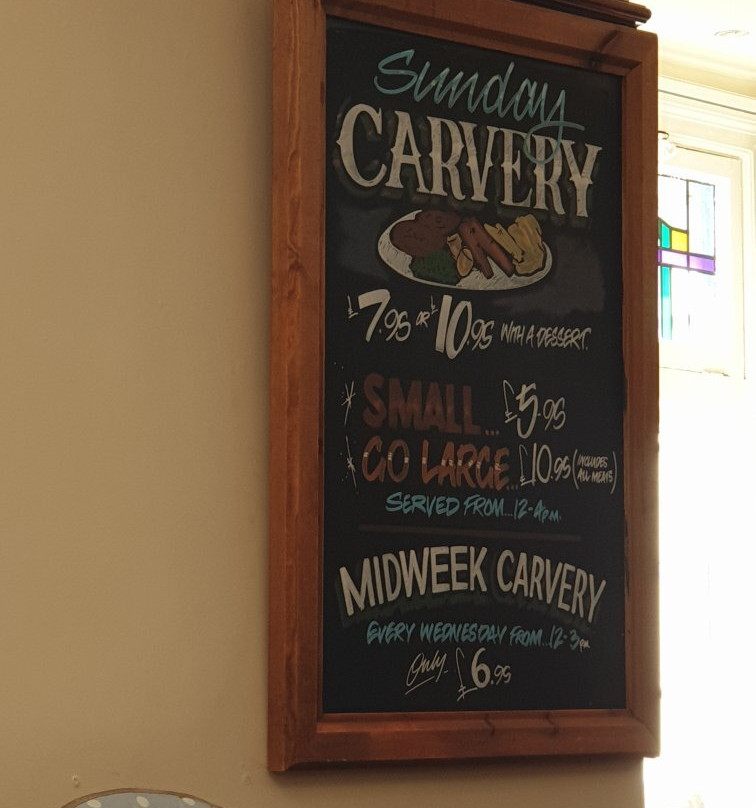 Sunday
CARVERY
£7.95 OR £10.95 WITH A DESSERT.
* SMALL... £5.95
* GO LARGE... £10.95 (INCLUDES ALL MEATS)
SERVED FROM...12-4pm.
MIDWEEK CARVERY
EVERY WEDNESDAY FROM...12-3pm
Only £6.95